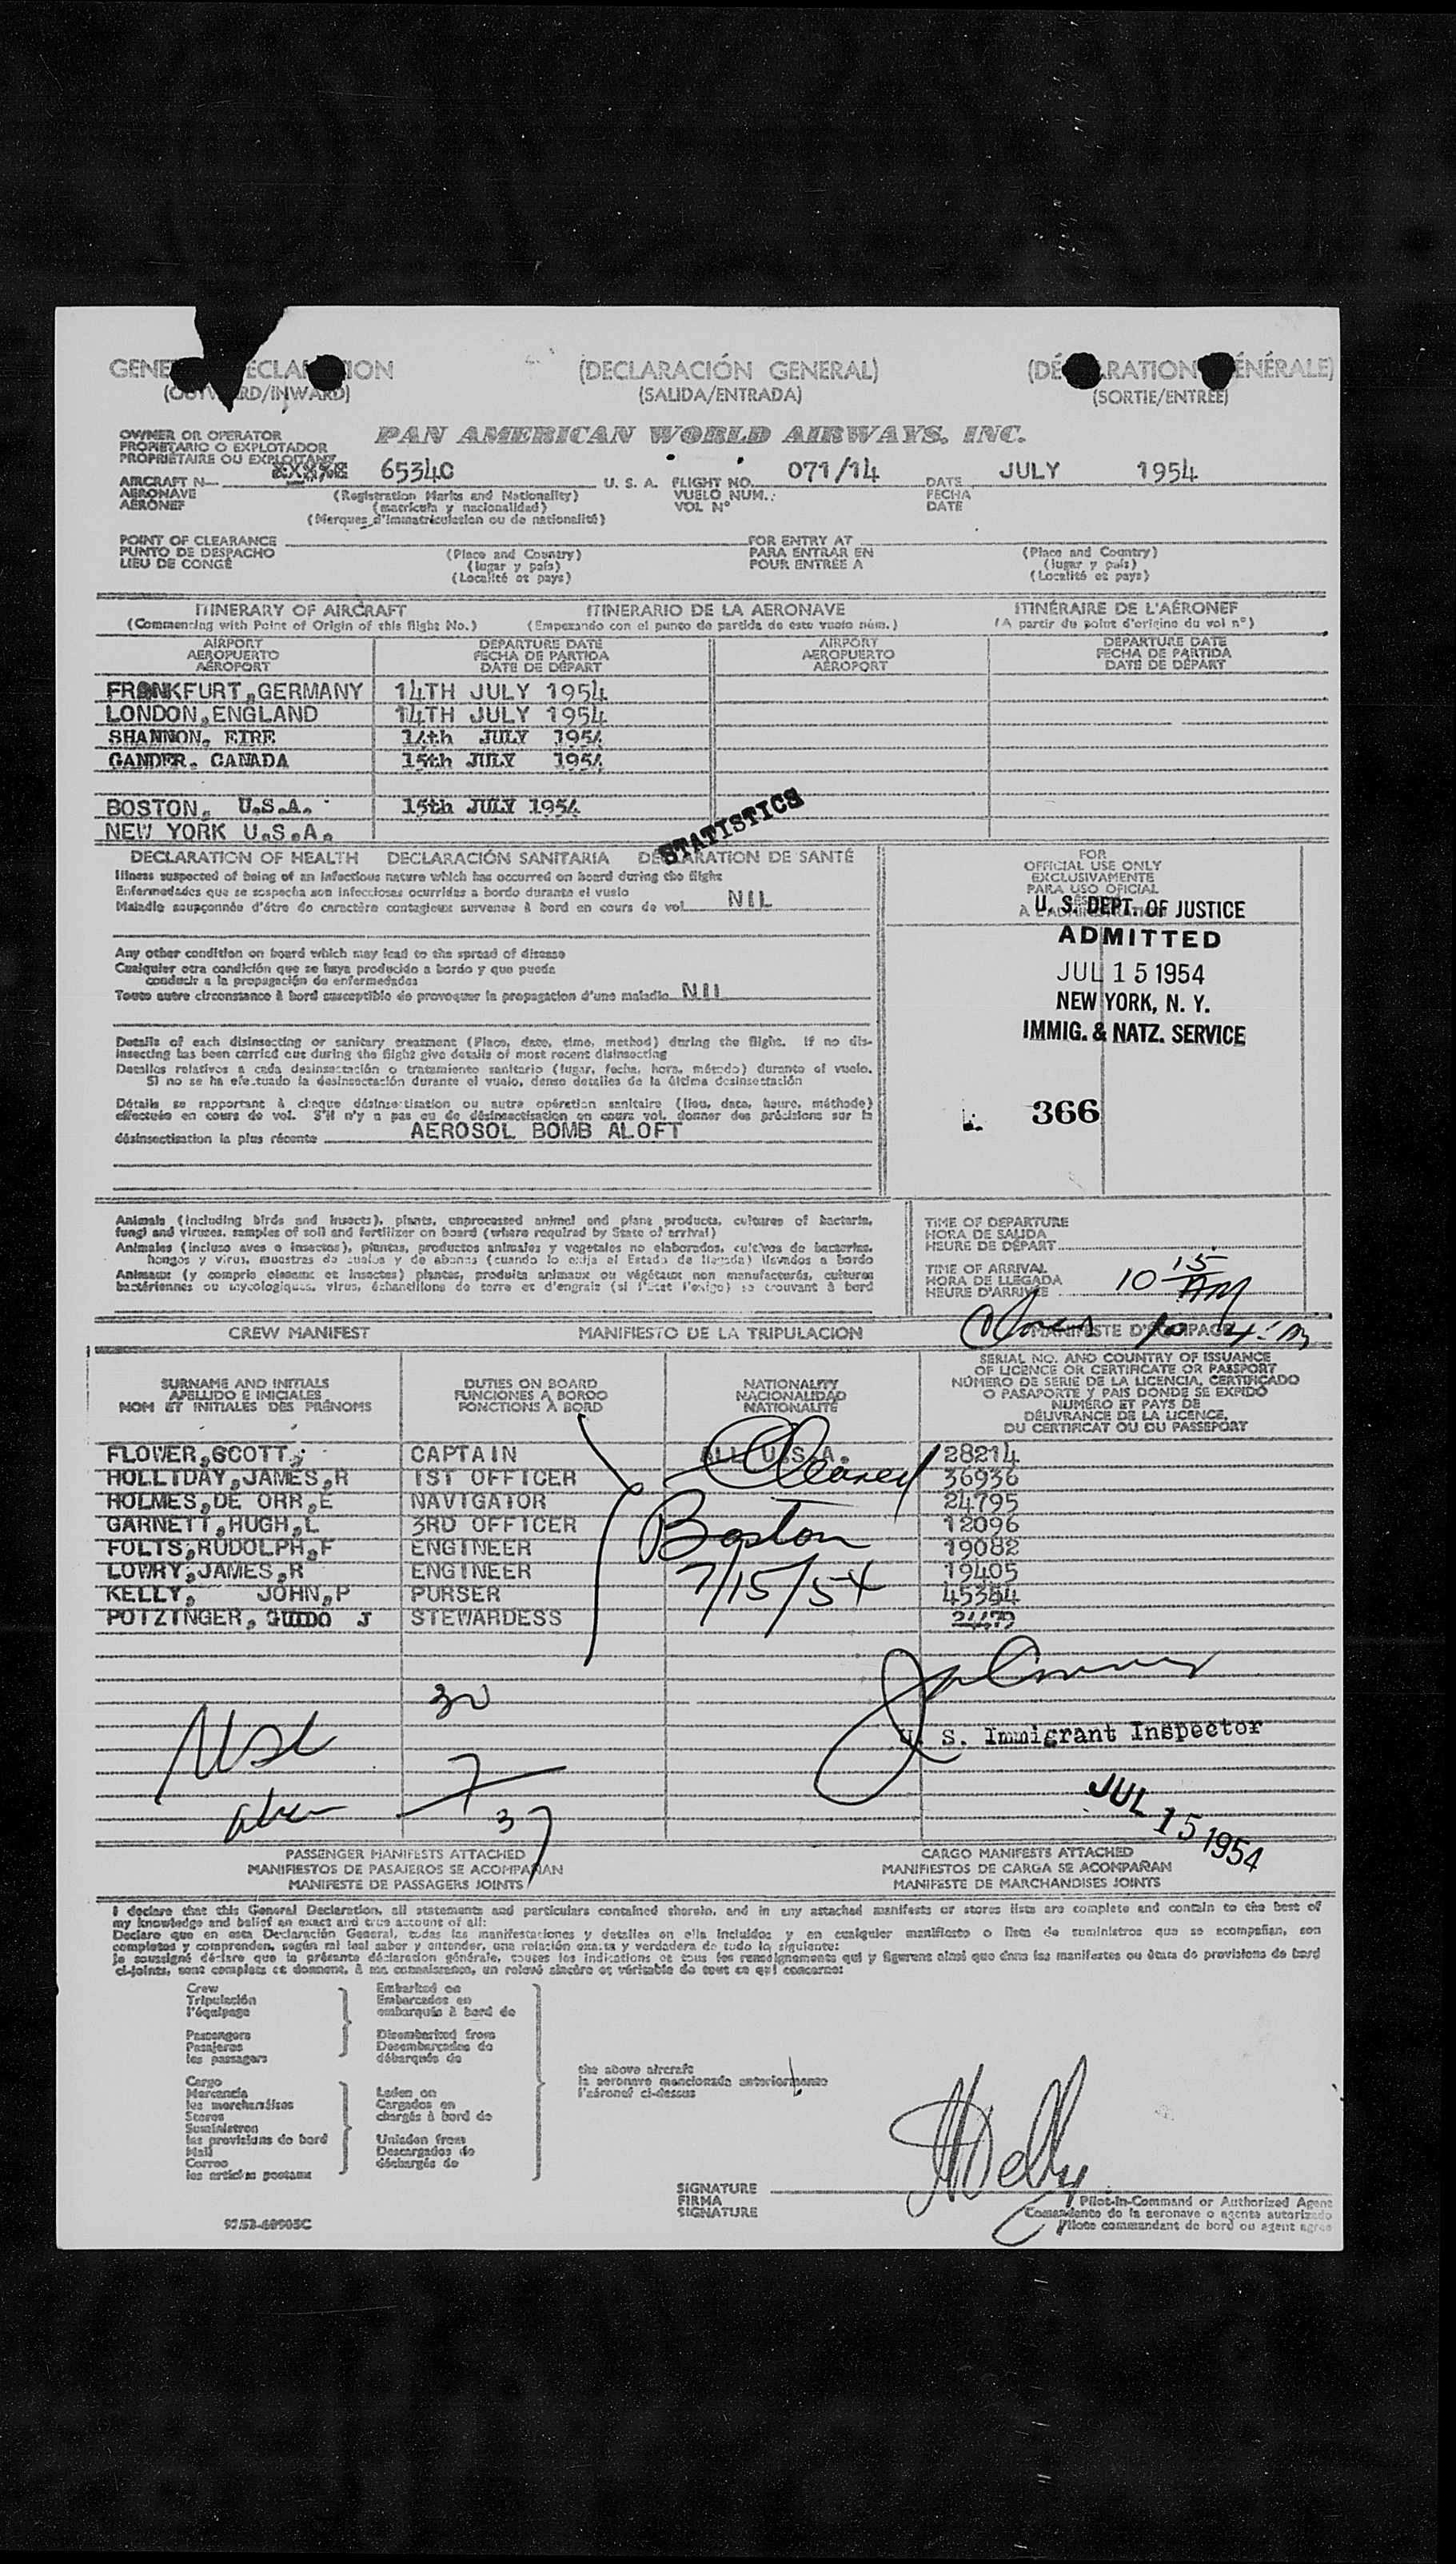 (DECLARACIÓN GENERAL)
(SALIDA/ENTRADA)
(SORTIE/ENTRÉE)
OWNER OR OPERATOR
PROPIETARIO O EXPLOTADOR
PROPRIÉTAIRE OU EXPLOITANT
PAN AMERICAN WORLD AIRWAYS, INC.
AIRCRAFT N— 6534C U. S. A. FLIGHT NO. 071/14 DATE JULY 1954
AERONAVE (Registration Marks and Nationality) VUELO NUM.: FECHA
AÉRONEF (matrícula y nacionalidad) VOL Nº DATE
(Merques d'immatriculation ou de nationalité)
POINT OF CLEARANCE FOR ENTRY AT
PUNTO DE DESPACHO (Place and Country) PARA ENTRAR EN (Place and Country)
LIEU DE CONGÉ (lugar y país) POUR ENTRÉE A (lugar y país)
(Localité et pays) (Localité et pays)
ITINERARY OF AIRCRAFT ITINERARIO DE LA AERONAVE ITINÉRAIRE DE L'AÉRONEF
(Commencing with Point of Origin of this flight No.) (Empezando con el punto de partida de este vuelo núm.) (A partir du point d'origine du vol nº)
AIRPORT DEPARTURE DATE AIRPORT DEPARTURE DATE
AEROPUERTO FECHA DE PARTIDA AEROPUERTO FECHA DE PARTIDA
AÉROPORT DATE DE DÉPART AÉROPORT DATE DE DÉPART
FRANKFURT,GERMANY 14TH JULY 1954
LONDON,ENGLAND 14TH JULY 1954
SHANNON, EIRE 14th JULY 1954
GANDER, CANADA 15th JULY 1954
BOSTON, U.S.A. 15th JULY 1954
NEW YORK U.S.A.
STATISTICS
DECLARATION OF HEALTH DECLARACIÓN SANITARIA DÉCLARATION DE SANTÉ
Illness suspected of being of an infectious nature which has occurred on board during the flight
Enfermedades que se sospecha son infecciosas ocurridas a bordo durante el vuelo
Maladie soupçonnée d'être de caractère contagieux survenue à bord en cours de vol NIL
Any other condition on board which may lead to the spread of disease
Cualquier otra condición que se haya producido a bordo y que pueda
conducir a la propagación de enfermedades
Toute autre circonstance à bord susceptible de provoquer la propagation d'une maladie NIL
Details of each disinsecting or sanitary treatment (Place, date, time, method) during the flight. If no dis-
insecting has been carried out during the flight give details of most recent disinsecting
Detalles relativos a cada desinsectación o tratamiento sanitario (lugar, fecha, hora, método) durante el vuelo.
Si no se ha efectuado la desinsectación durante el vuelo, dense detalles de la última desinsectación
Détails se rapportant à chaque désinsectisation ou autre opération sanitaire (lieu, date, heure, méthode)
effectuée en cours de vol. S'il n'y a pas eu de désinsectisation en cours vol, donner des précisions sur la
désinsectisation la plus récente AEROSOL BOMB ALOFT
FOR
OFFICIAL USE ONLY
EXCLUSIVAMENTE
PARA USO OFICIAL
U. S. DEPT. OF JUSTICE
ADMITTED
JUL 15 1954
NEW YORK, N. Y.
IMMIG. & NATZ. SERVICE
366
Animals (including birds and insects), plants, unprocessed animal and plant products, cultures of bacteria,
fungi and viruses, samples of soil and fertilizer on board (where required by State of arrival)
Animales (incluso aves e insectos), plantas, productos animales y vegetales no elaborados, cultivos de bacterias,
hongos y virus, muestras de suelos y de abonos (cuando lo exija el Estado de llegada) llevados a bordo
Animaux (y compris oiseaux et insectes) plantes, produits animaux ou végétaux non manufacturés, cultures
bactériennes ou mycologiques, virus, échantillons de terre et d'engrais (si l'état l'exige) se trouvant à bord
TIME OF DEPARTURE
HORA DE SALIDA
HEURE DE DÉPART
TIME OF ARRIVAL
HORA DE LLEGADA 10 15 AM
HEURE D'ARRIVÉE
CREW MANIFEST MANIFIESTO DE LA TRIPULACION
SERIAL NO. AND COUNTRY OF ISSUANCE
OF LICENCE OR CERTIFICATE OR PASSPORT
SURNAME AND INITIALS DUTIES ON BOARD NATIONALITY NÚMERO DE SERIE DE LA LICENCIA, CERTIFICADO
APELLIDO E INICIALES FUNCIONES A BORDO NACIONALIDAD O PASAPORTE Y PAIS DONDE SE EXPIDÓ
NOM ET INITIALES DES PRÉNOMS FONCTIONS À BORD NATIONALITÉ NUMÉRO ET PAYS DE
DÉLIVRANCE DE LA LICENCE,
DU CERTIFICAT OU DU PASSEPORT
FLOWER,SCOTT CAPTAIN ALL U.S.A. 28214
HOLLIDAY,JAMES,R 1ST OFFICER 36936
HOLMES,DE ORR,E NAVIGATOR 24795
GARNETT,HUGH,L 3RD OFFICER 12096
FOLTS,RUDOLPH,F ENGINEER 19082
LOWRY,JAMES,R ENGINEER 19405
KELLY, JOHN,P PURSER 45354
POTZINGER, GUIDO J STEWARDESS
Cleared
Boston
7/15/54
30
7
37
U. S. Immigrant Inspector
JUL 15 1954
PASSENGER MANIFESTS ATTACHED CARGO MANIFESTS ATTACHED
MANIFIESTOS DE PASAJEROS SE ACOMPAÑAN MANIFIESTOS DE CARGA SE ACOMPAÑAN
MANIFESTE DE PASSAGERS JOINTS MANIFESTE DE MARCHANDISES JOINTS
I declare that this General Declaration, all statements and particulars contained therein, and in any attached manifests or stores lists are complete and contain to the best of
my knowledge and belief an exact and true account of all:
Declaro que en esta Declaración General, todas las manifestaciones y detalles en ella incluidos y en cualquier manifiesto o lista de suministros que se acompañan, son
completos y comprenden, según mi leal saber y entender, una relación exacta y verdadera de todo lo siguiente:
Je soussigné déclare que la présente déclaration générale, toutes les indications et tous les renseignements qui y figurent ainsi que dans les manifestes ou états de provisions de bord
ci-joints, sont complets et donnent, à ma connaissance, un relevé sincère et véritable de tout ce qui concerne:
Crew Embarked on
Tripulación Embarcados en
l'équipage embarqués à bord de
Passengers Disembarked from
Pasajeros Desembarcados de
les passagers débarqués de
the above aircraft
la aeronave mencionada anteriormente
l'aéronef ci-dessus
Cargo
Mercancía Laden on
les marchandises Cargados en
Stores chargés à bord de
Suministros
les provisions de bord Unladen from
Mail Descargados de
Correo déchargés de
les articles postaux
SIGNATURE
FIRMA
SIGNATURE
Pilot-in-Command or Authorized Agent
Comandante de la aeronave o agente autorizado
Pilote commandant de bord ou agent agréé